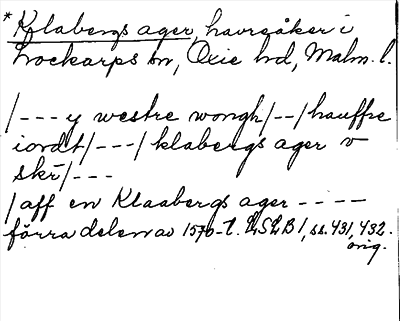 *Klabergs ager, havreåker i
Lockarps sn, Oxie hd, Malm. l.
/--- y westre wongh/--/hauffre
iordt/---/klabergs ager v
skr/---
/aff en Klaabergs ager ----
förra delen av 1570-t. LSLB 1, ss. 431, 432.
orig.